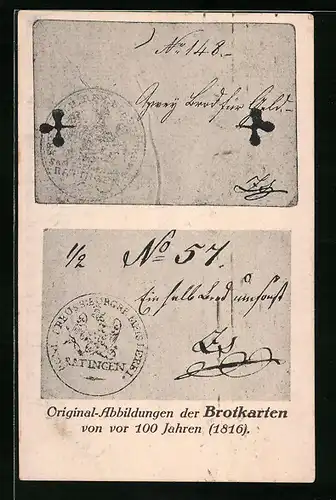 No 148.
Zwey Brod für Geld.
1/2 No 57.
Ein halb Brod umsonst
RATINGEN
Original-Abbildungen der Brotkarten
von vor 100 Jahren (1816).